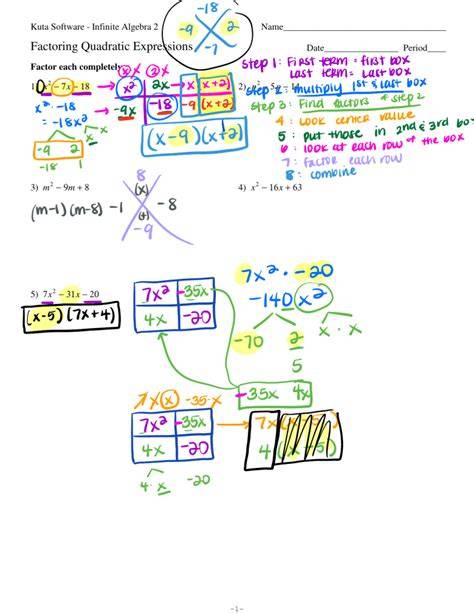 Kuta Software - Infinite Algebra 2
Name
-18
-9 2
-7
Factoring Quadratic Expressions
Date Period
Factor each completely.
1) x² - 7x - 18
x² · -18
-18x²
-9 2
9 1
x x 2x
x² 2x → x (x+2)
-9x -18 -9 (x+2)
(x-9)(x+2)
Step 1: First term = first box
last term = last box
Step 2: multiply 1st & last box
Step 3: Find factors of step 2
4: look center value
5: put those in 2nd & 3rd box
6: look at each row of the box
7: factor each row
8: combine
3) m² - 9m + 8
(m-1)(m-8)
8
(x)
-1 -8
(+)
-9
4) x² - 16x + 63
5) 7x² - 31x - 20
(x-5)(7x+4)
7x² -35x
4x -20
7x² · -20
-140 x²
-70 2
x · x
5
-35x 4x
7x(x) -35·x
7x² -35x
4x -20
7x (x-5)
4 (x-5)
4·x -20
-1-